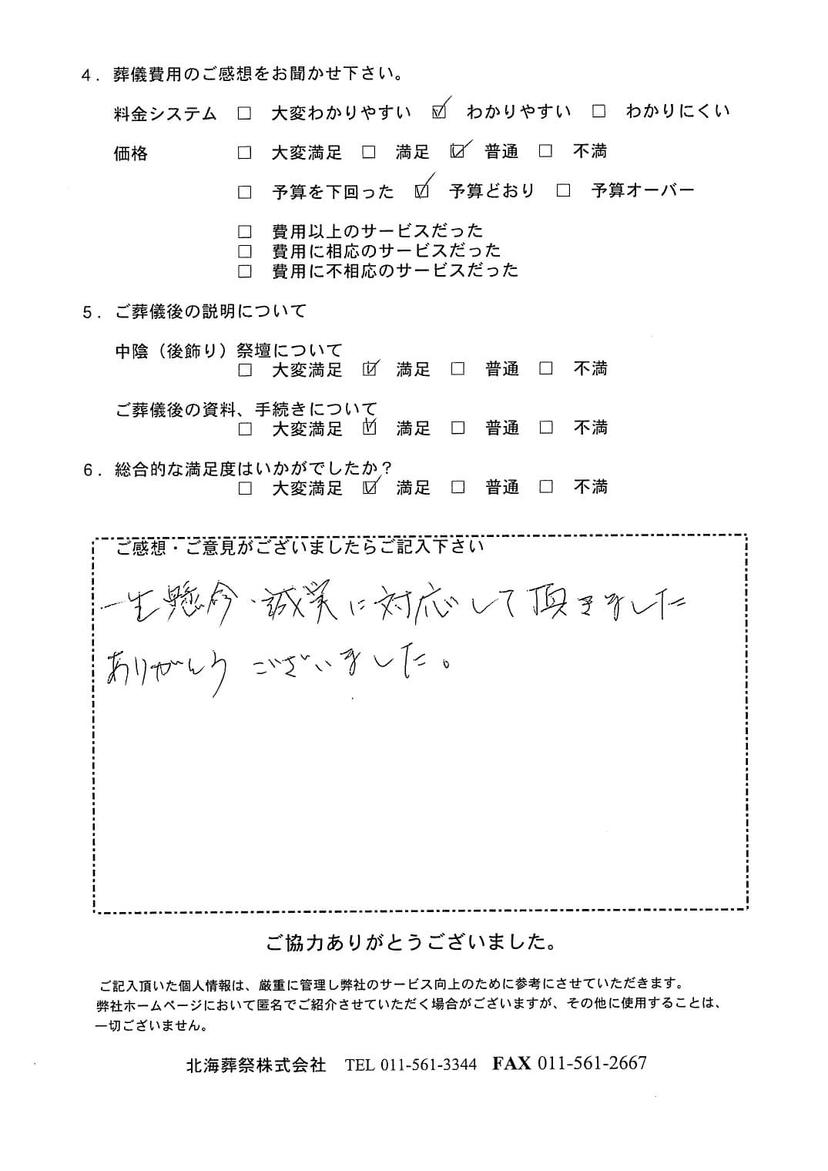 4．葬儀費用のご感想をお聞かせ下さい。
料金システム □ 大変わかりやすい ☑ わかりやすい □ わかりにくい
価格 □ 大変満足 □ 満足 ☑ 普通 □ 不満
□ 予算を下回った ☑ 予算どおり □ 予算オーバー
□ 費用以上のサービスだった
□ 費用に相応のサービスだった
□ 費用に不相応のサービスだった
5．ご葬儀後の説明について
中陰（後飾り）祭壇について
□ 大変満足 ☑ 満足 □ 普通 □ 不満
ご葬儀後の資料、手続きについて
□ 大変満足 ☑ 満足 □ 普通 □ 不満
6．総合的な満足度はいかがでしたか？
□ 大変満足 ☑ 満足 □ 普通 □ 不満
ご感想・ご意見がございましたらご記入下さい
一生懸命・誠実に対応して頂きました
ありがとう ございました。
ご協力ありがとうございました。
ご記入頂いた個人情報は、厳重に管理し弊社のサービス向上のために参考にさせていただきます。
弊社ホームページにおいて匿名でご紹介させていただく場合がございますが、その他に使用することは、
一切ございません。
北海葬祭株式会社 TEL 011-561-3344 FAX 011-561-2667